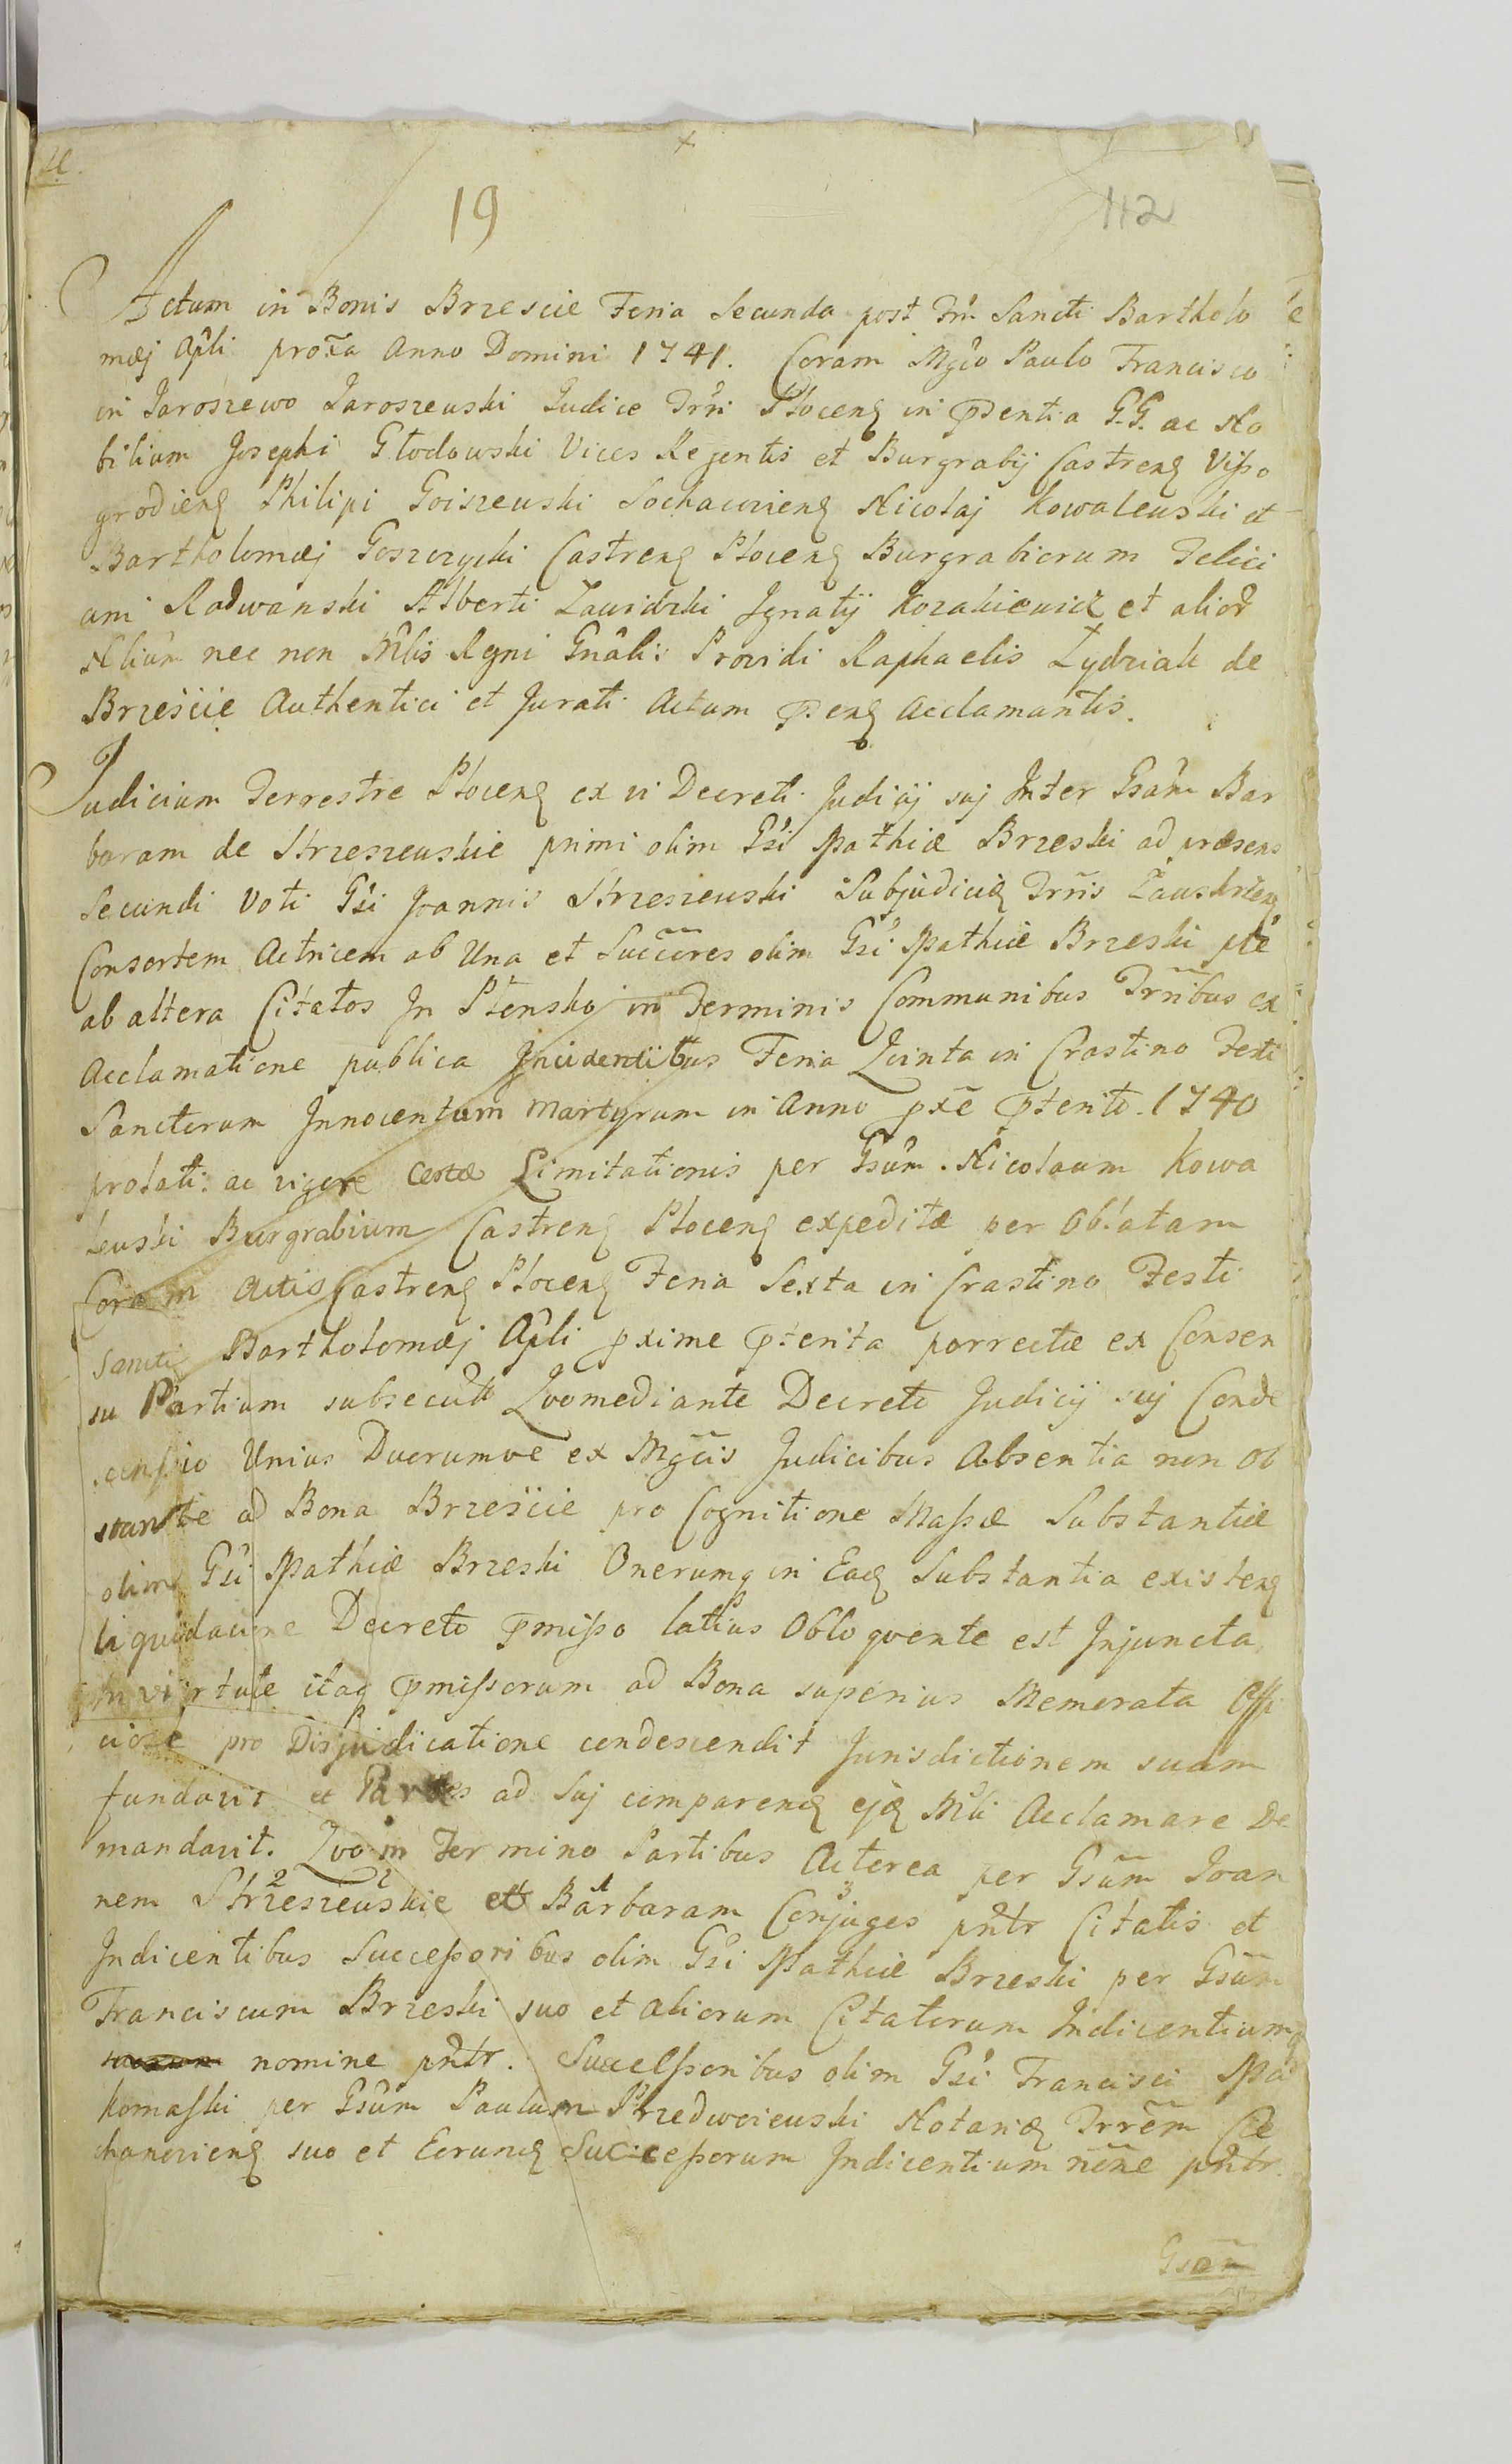 19
112
Actum in Bonis Brzescie Feria Secunda post Fm̃ Sancti Bartholo
mæj Apli prox̃a Anno Domini 1741. Coram Mgco Paulo Francisco
in Jaroszewo Jaroszewski Judice Trri Płocen in pdentia G.G. ac No
bilium Josephi Głodowski Vices Regentis et Burgrabij Castren Visso
grodien Philipi Goiszewski Sochaczvien Nicolaj Kowalewski et
Bartholomæj Goszczycki Castren Płocen Burgrabiorum Felici
ani Radwanski Alberti Zawidzki Ignatij Kozakiewicz et alior
Nlium nec non Mlis Regni Gnalis Providi Raphaelis Zydziak de
Brzeście Authentici et Jurati Actum pen Acclamantis.
Judicium Terrestre Płocen ex vi Decreti Judicij suj Inter Gsam Bar
baram de Strzeszewskie primi olim Gsi Mathiæ Brzeski ad præsens
Secundi Voti Gsi Joannis Strzeszewski Subjudicis Trris Zawskrzen
Consortem Actricem ab Una et Succõres olim Gsi Mathiæ Brzeski pte
ab altera Citatos In Płonsko in Terminis Communibus Trribus ex
Acclamatione publica Incidentibus Feria Qvinta in Crastino Festi
Sanctorum Innocentum Martyrum in Anno pxe pterito 1740
prolati ac vigore certæ Limitationis per Gsum Nicolaum Kowa
lewski Burgrabium Castren Płocen expeditæ per Oblatam
Coram Actis Castren Płocen Feria Sexta in Crastino Festi
Sancti Bartholomæj Apli pxime pterita porrectæ ex Consen
su Partium subsecut Qvomediante Decreto Judicij suj Conde
scensio Unius Duorumve ex Mgcis Judicibus Absentia non Ob
stante ad Bona Brzeście pro Cognitione Massæ Substantiæ
olim Gsi Mathiæ Brzeski Onerumq in Ead Substantia existen
liquidatione Decreto pmisso latius Obloqvente est Injuncta
In virtute itaq pmissorum ad Bona superius Memorata Offi
ciose pro Disjudicatione condescendit Jurisdictionem suam
fundavit et Partes ad Suj comparend ejq Mli Acclamare De
mandavit. Qvo in Termino Partibus Actorea per Gsum Joan
nem Strzeszewskie et Barbaram Conjuges pntr Citatis et
Indicentibus Successoribus olim Gsi Mathiæ Brzeski per Gsum
Franciscum Brzeski suo et aliorum Citatorum Indicentiumq
nomine pntr. Successoribus olim Gsi Francisci Ma
komaski per Gsum Paulum Przedwoiewski Notariq Trrem Cie
chanovien suo et Eorund Successorum Indicentium nõne pntr.
Gsam